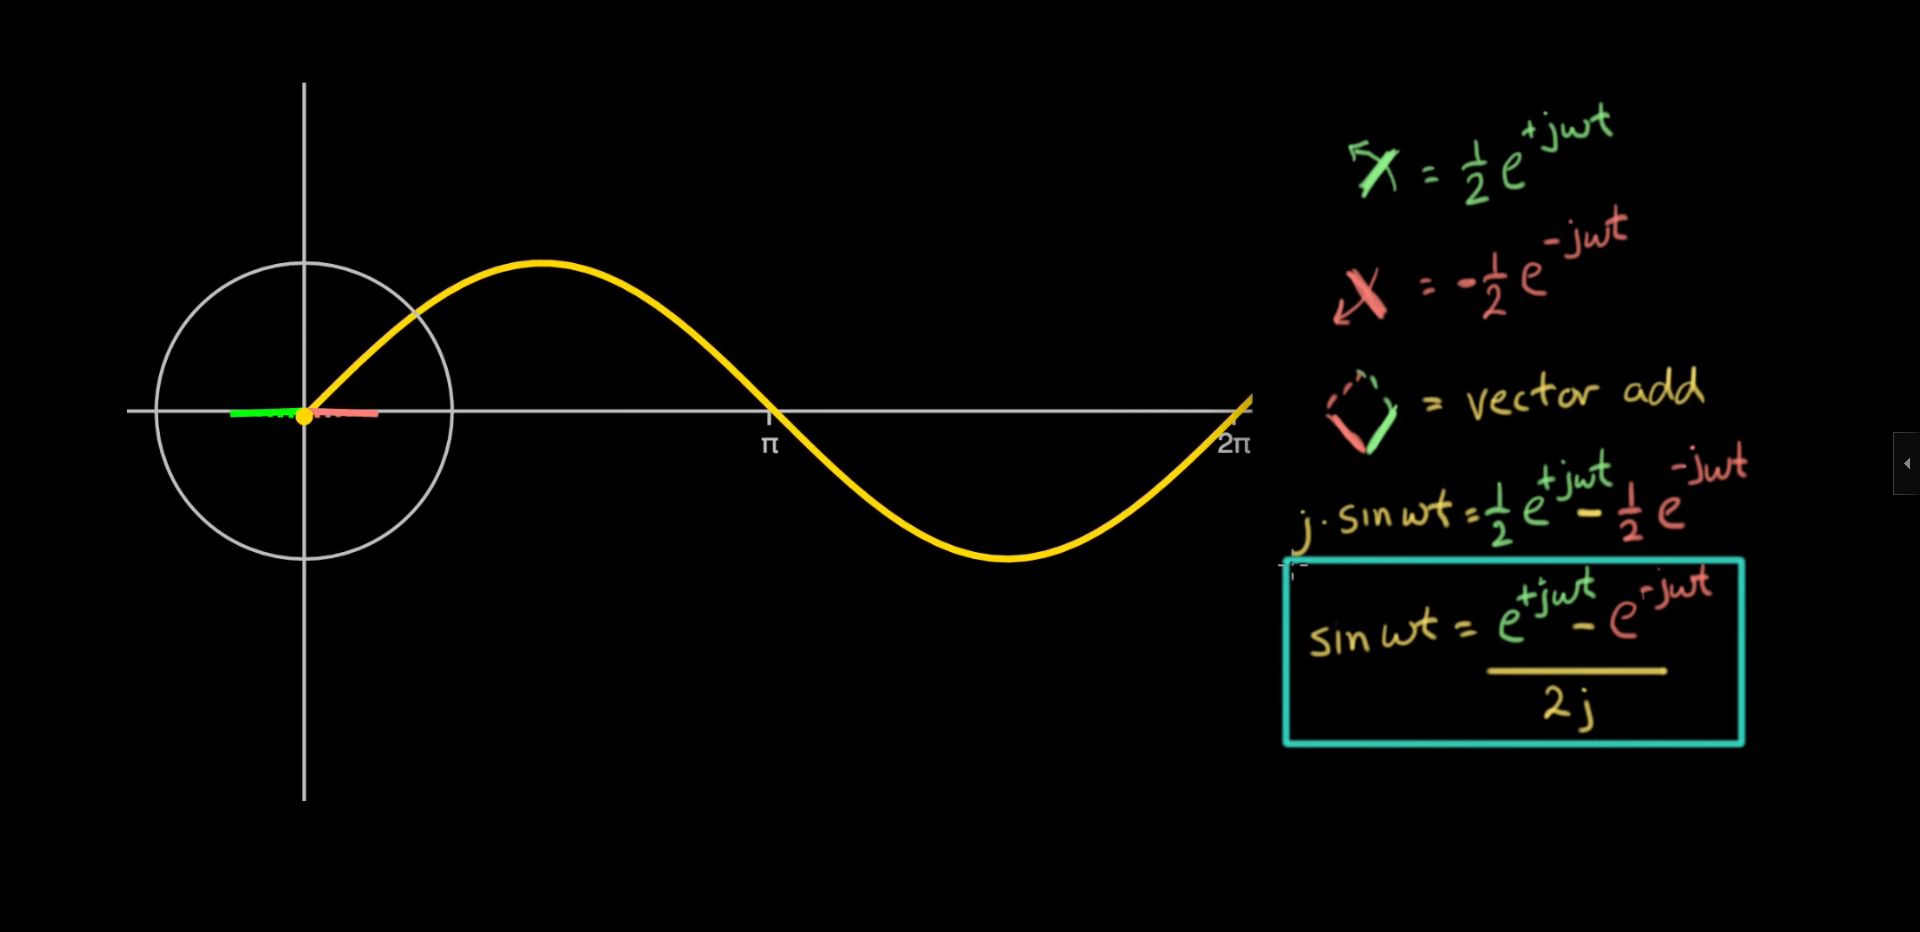 π
2π
= 1/2 e^{+jωt}
= -1/2 e^{-jωt}
= vector add
j · sin ωt = 1/2 e^{+jωt} - 1/2 e^{-jωt}
sin ωt = e^{+jωt} - e^{-jωt}
2j